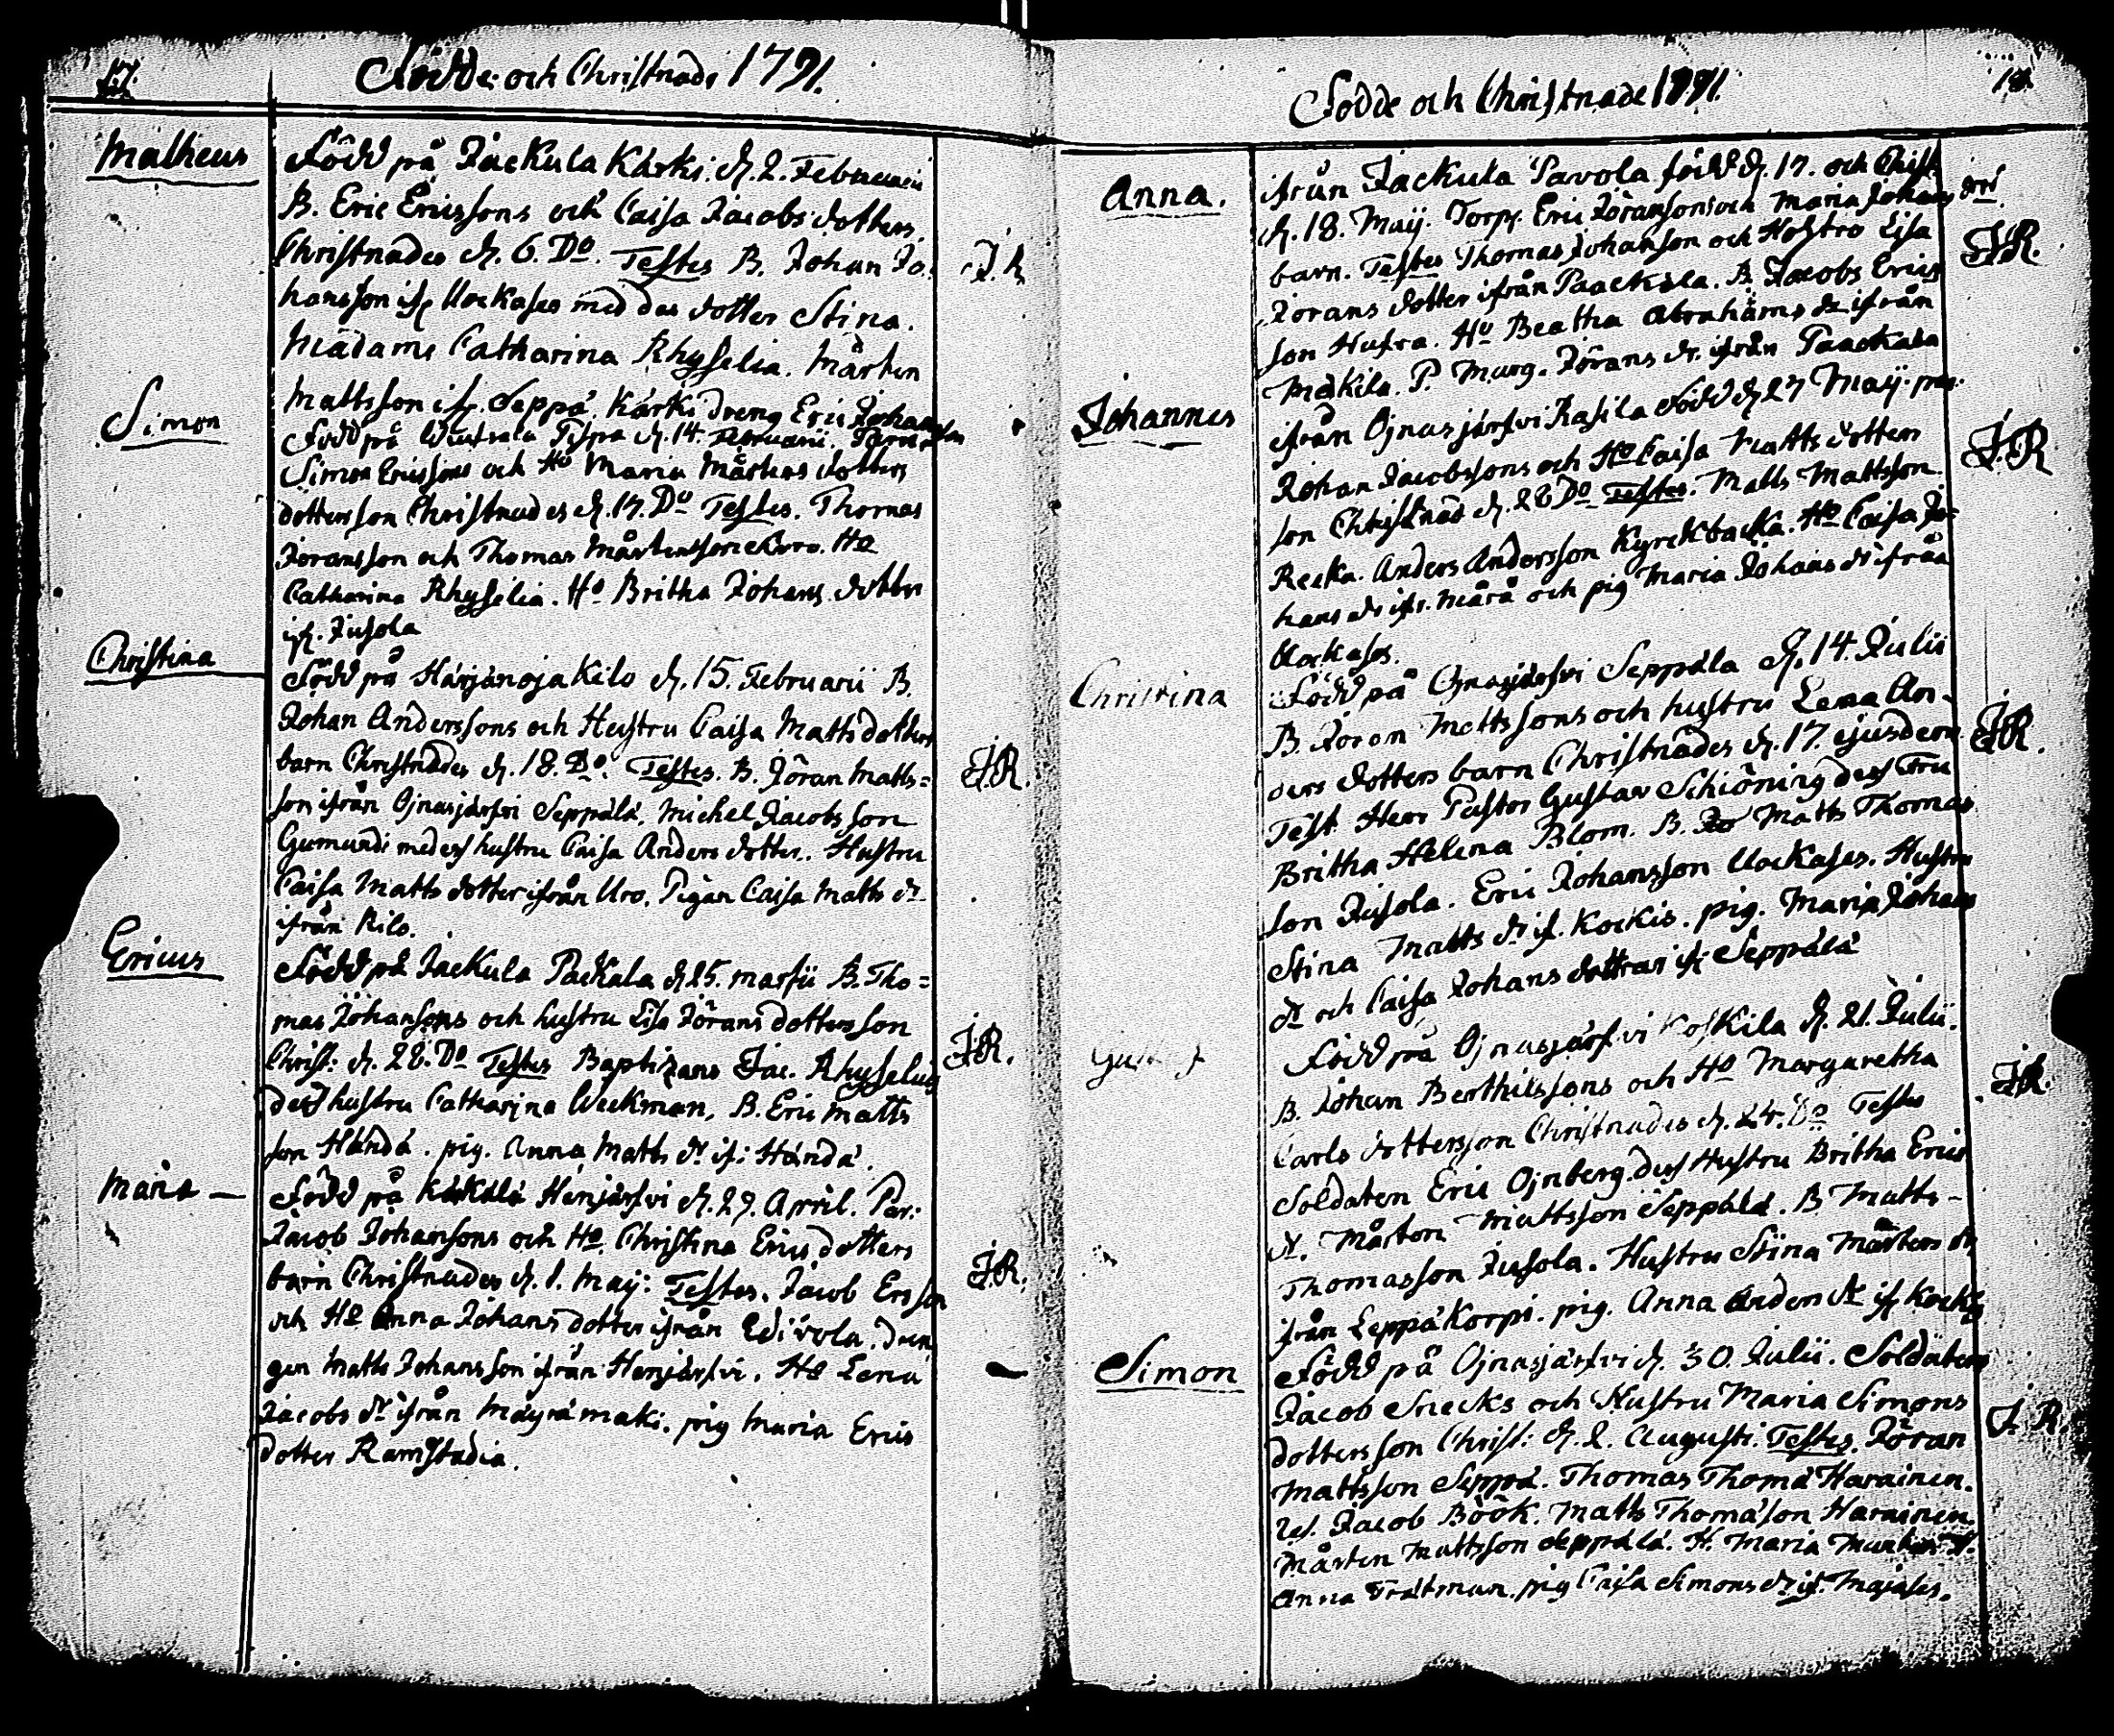 17.
Födde och Christnade 1791.
Matheus
Född på Jackula Kärki. d. 2. Februarii
B. Eric Ericssons och Caisa Jacobs dotters.
Christnades d. 6. Do. Testes B. Johan Jo-
J.R.
hansson ifr Uockases med des dotter Stina.
Madame Catharina Rhyselia. Mårten
Mattsson ifr. Seppä. Kärki dreng Eric Johansson
Simon
Född på d. 14. Februarii.
Simon Ericssons och Ho Maria Mårtens dotters
dottersson Christnades d. 17. Do Testes. Thomas
Joransson och Thomas Mårtensson Ho
Catharina Rhyselia. Ho Britha Johans dotter
ifr. Jusola
Christina
Född på Härjänoja Kilo d. 15. Februarii B.
Johan Anderssons och Hustru Caisa Matts dotters
barn Christnades d. 18. Do. Testes. B. Jöran Matts=
J.R.
son ifrån Ojnasjärfvi Seppälä, Michel Jacobsson
Gumundi med des hustru Caisa Anders dotter. Hustru
Caisa Matts dotter ifrån Uro. Pigan Caisa Matts dr
ifrån Kilo.
Ericus
Född på Jackula Packala d. 25. martii B. Tho=
mas Johansons och hustru Lisa Jörans dottersson
Christ: d. 28. Do Testes Baptizans Jac. Rhyselius
J.R.
des hustru Catharina Weckman, B. Eric Matts
son Händä. pig. Anna Matts dr if: Händä.
Maria —
Född på Henjärfvi d. 29. April. Par:
Jacob Johansons och Ho Christina Erics dotters
barn Christnades d. 1. Maij: Testes. Jacob Ersson
J.R.
och Ho Anna Johans dotter ifrån Edivola. dren
gen Matts Johansson ifrån Henjärfvi. Ho Lena
Jacobs dr ifrån Mäyrämaki. pig Maria Erics
dotter Ramstadia.
18.
Födde och Christnade 1791.
Anna.
ifrån Jackula Pavola född d. 17. och Christ.
d. 18. Maij. Torp. Eric Jöransons och Maria Johans dotr
barn. Testes Thomas Johanson och Hostro Lisa
J.R.
Jörans dotter ifrån Paackala. B. Jacobs Erics
son Hufra. Ho Beatha Abrahams dr ifrån
Mäkila. P. Marg. Jörans dr. ifrån Paackala
Johannes
ifrån Ojnasjärfvi Rasila född d. 27 Maij
Johan Jacobssons och Ho Caisa Matts dotters
J.R.
son Christnad d. 28 Do Testes. Matts Mattsson
Recka. Anders Andersson Kyrckbacka. Ho Caisa Jo=
hans dr ifr. Mårå och pig Maria Johans dr ifrån
Uockases.
Christina
Född på Ojnasjärfvi Seppäla d. 14. Julii
B. Jöran Mattssons och hustru Lena An-
ders dotters barn Christnades d. 17. ejusdem
J.R.
Test. Herr Pastor Gustav Schiöning des Fru
Britha Helena Blom. B. Matts Thomas
son Jusola. Eric Johansson Uockases. Hustru
Stina Matts dr if. Kockis. pig. Maria Johans
dr och Caisa Johans dottrar ifr Seppälä
Född på Ojnasjärfvi Koskila d. 21. Julii.
B. Johan Berthilssons och Ho Margaretha
J.R.
Carls dottersson Christnades d. 24. Do Testes
Soldaten Eric Ojnberg. des Hustru Britha Erics
dr. Mårten Mattsson Seppälä. B Matts-
Thomasson Jusola. Hustru Stina Mårtens dr
ifrån Leppäkorpi. pig. Anna Anders dr if Kockis
Simon
Född på Ojnasjärfvi d. 30. Julii. Soldatens
Jacob Snecks och Hustru Maria Simons
J.R.
dottersson Christ: d. 2. Augusti. Testes. Jöran
Mattsson Seppä. Thomas Thomä Harainen.
Jacob Böök. Matts Thomäson Harainen.
Mårten Mattsson Seppälä. H. Maria
Anna Trätman. pig Caisa Simons dr if. Majases.